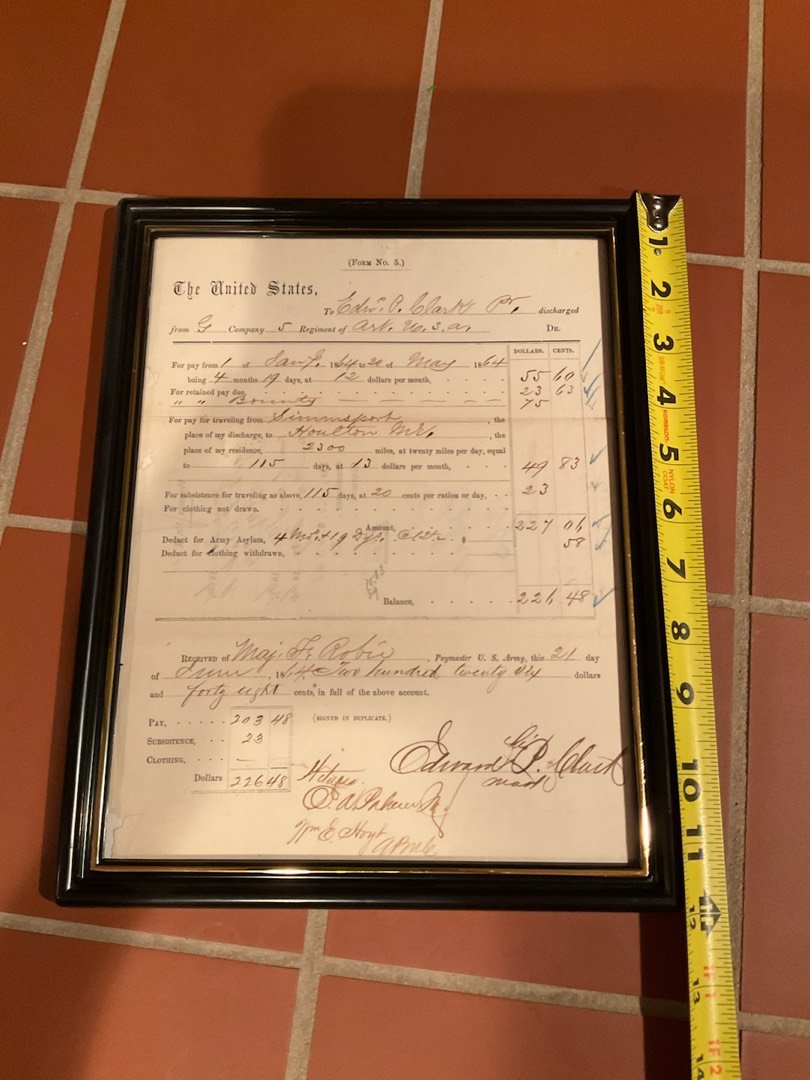 (FORM NO. 5.)
The United States,
To Edwd. P. Clark Pr. discharged
from G Company 5 Regiment of Art. U.S.A. DR.
DOLLARS. CENTS.
For pay from 1 of Jany. 1864 to 20 of May 1864
being 4 months 19 days, at 12 dollars per month, 55 60
For retained pay due, 23 63
" " Bounty 75
For pay for traveling from Simmsport, the
place of my discharge, to Houlton Me., the
place of my residence, 2300 miles, at twenty miles per day, equal
to 115 days, at 13 dollars per month, 49 83
For subsistence for traveling as above, 115 days, at 20 cents per ration or day, 23
For clothing not drawn.
Amount, 227 06
Deduct for Army Asylum, 4 Mos. 19 Dys. 58
Deduct for clothing withdrawn,
Balance, 226 48
RECEIVED OF Maj. F. Robie, Paymaster U. S. Army, this 21 day
of June, 1864 Two hundred twenty six dollars
and forty eight cents, in full of the above account.
PAY, 203 48 (SIGNED IN DUPLICATE.)
SUBSISTENCE, 23
CLOTHING, —
Dollars 226 48
Edward P. Clark
his
mark
Witness
Wm E. Hoyt
1
2
3
4
5
6
7
8
9
10
11
12
13
14
1F
1F 1
1F 2
NYLON COAT